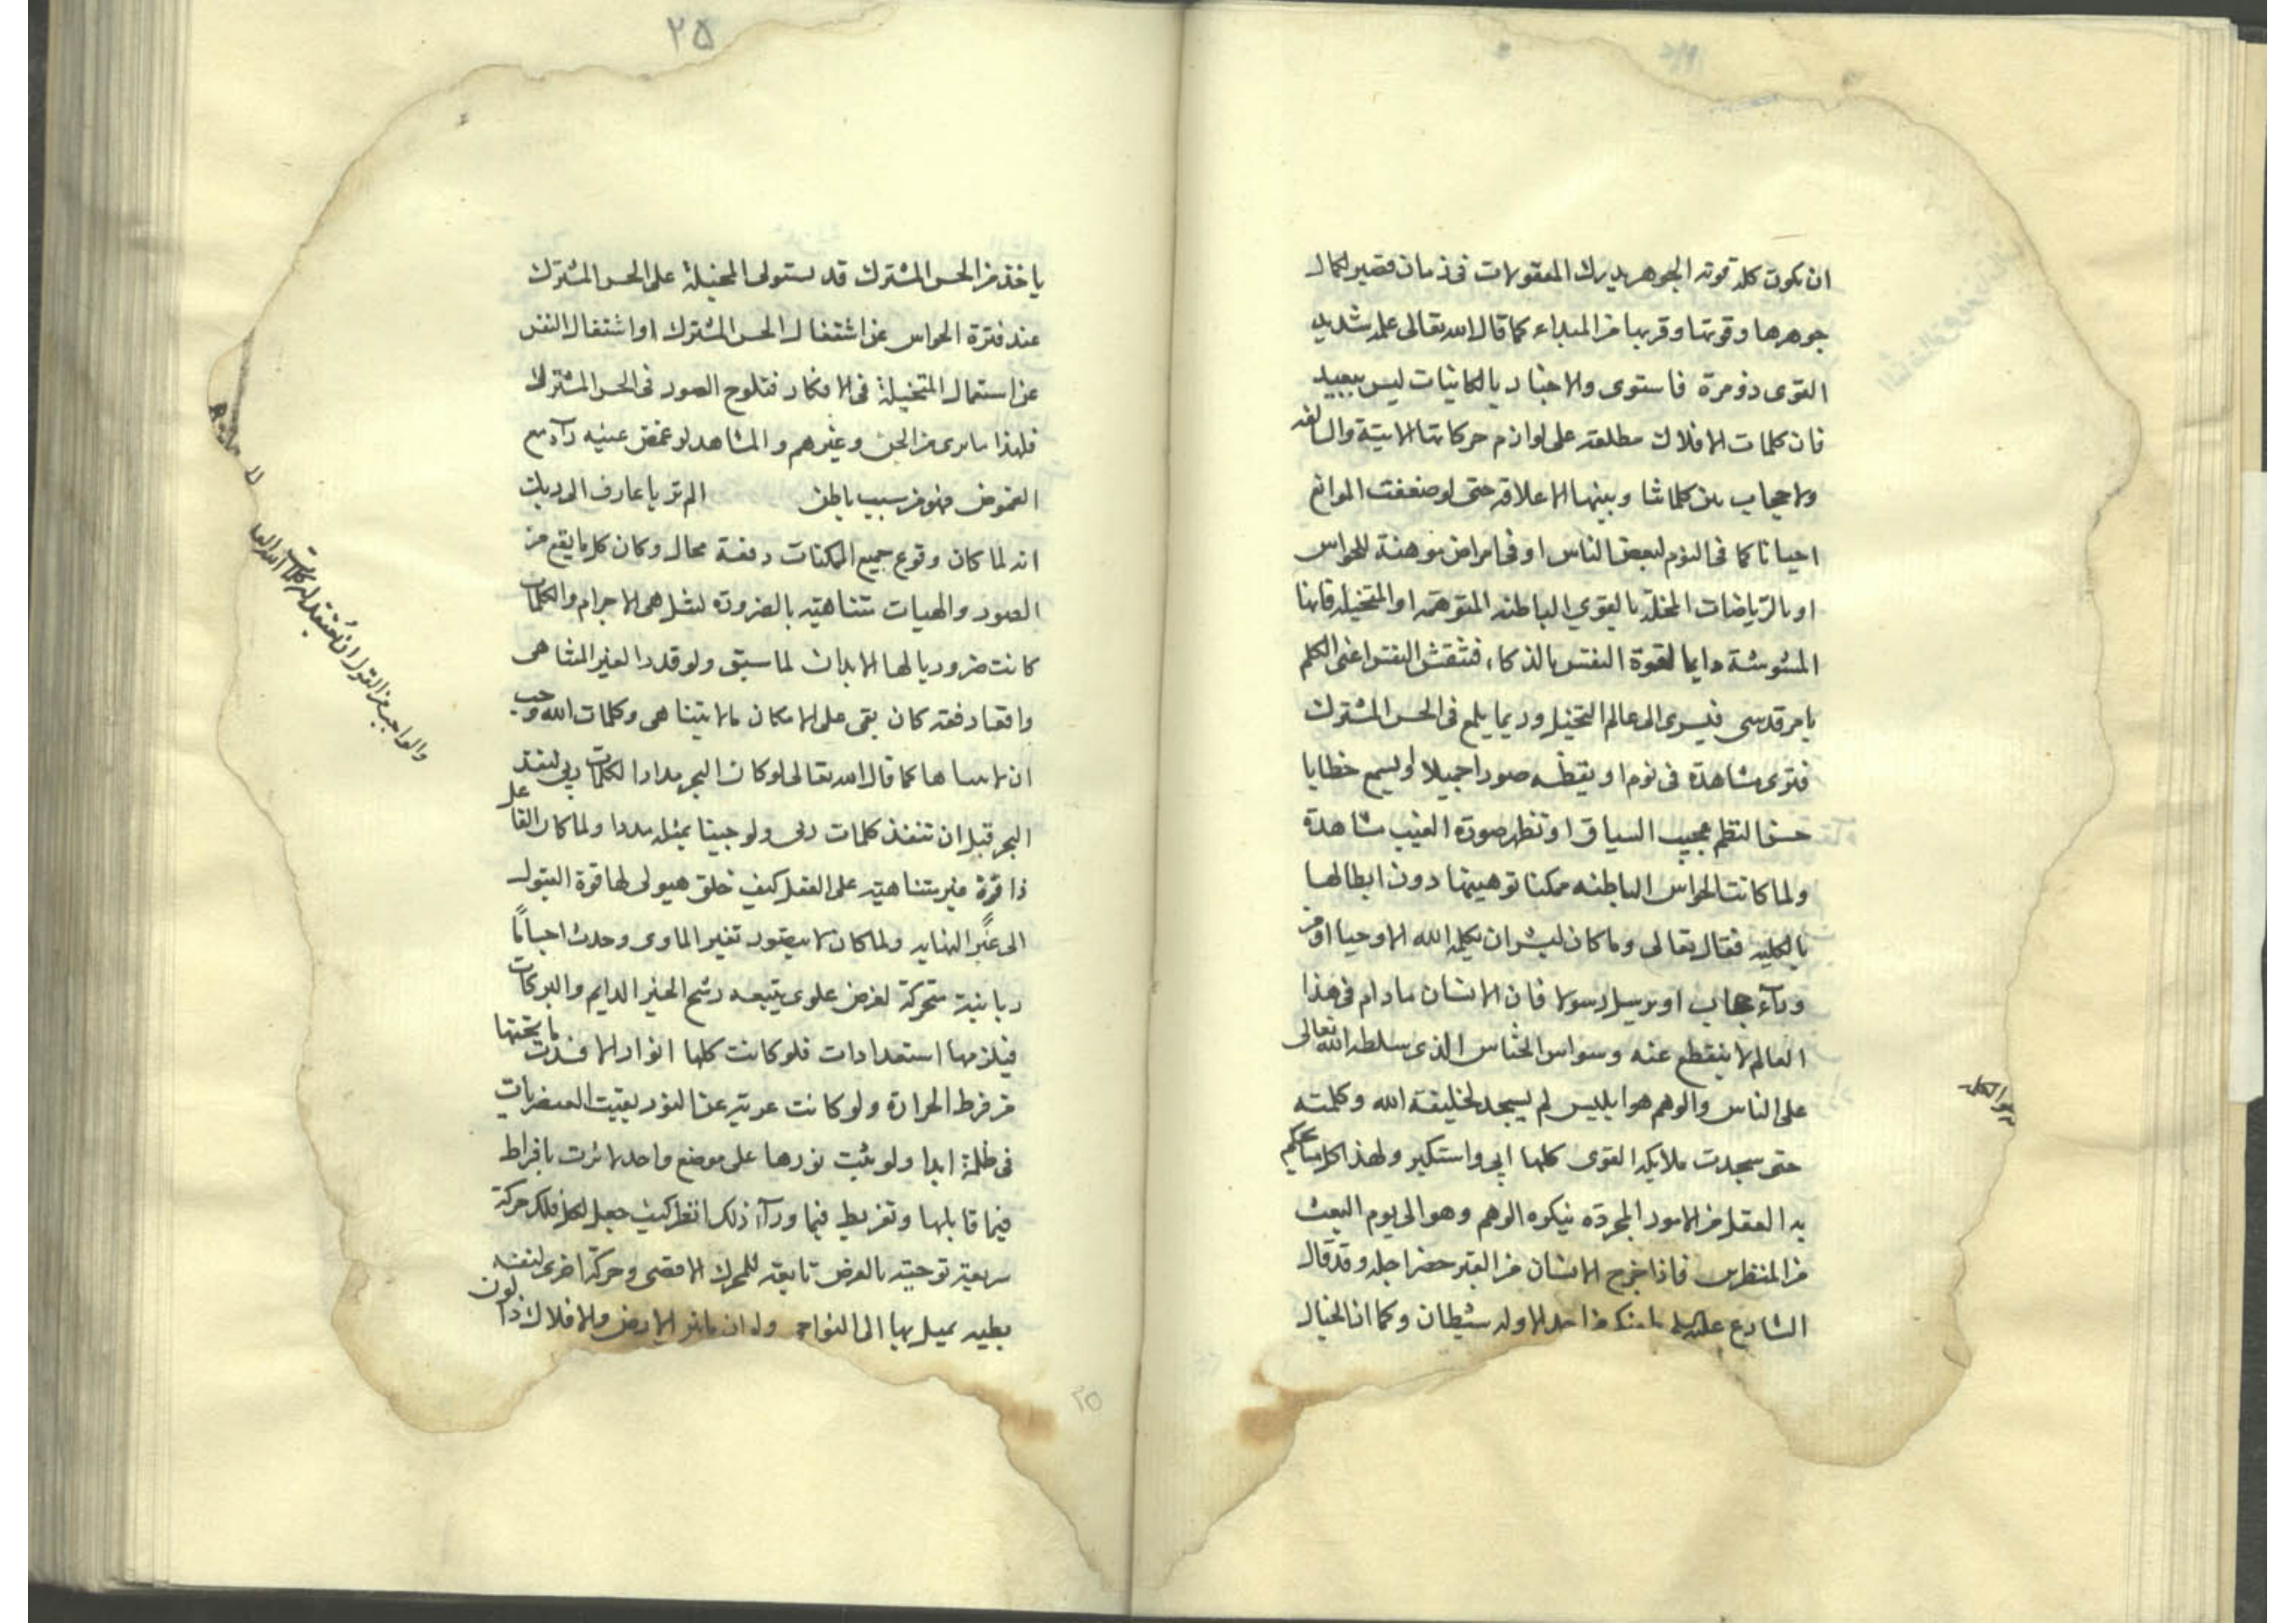 ان يكون كلمة قوته الجوهر يدرك المعقولات فى زمان قصير لكمال
جوهرها وقوتها وقربها من المبداء كما قال الله تعالى علمه شديد
القوى ذو مرة فاستوى والاخبار بالكاينات ليس ببعيد
فان كلمات الافلاك مطلعة على لوازم حركاتها الاتية والسالفة
ولا حجاب بين كلماتنا وبينها الا علاقة حتى لو ضعفت الموانع
احيانا كما فى النوم لبعض الناس او فى امراض موهنة للحواس
او بالرياضات المخلة بالقوي الباطنه المتوهمة او المتخيله فانها
المشوشة دايما لقوة النفس بالذكاء فتنقش النفس اعنى الكلم
بامر قدسى فيسرى الى عالم التخيل وربما يلمع فى الحس المشترك
فترى مشاهدة فى نوم او يقظه صورا جميلا او يسمع خطابا
حسن النظم عجيب السياق او تظهر صورة الغيب مشاهدة
ولما كانت الحواس الباطنه ممكنا توهينها دون ابطالها
بالكليه فقال تعالى وما كان لبشر ان يكلمه الله الا وحيا او من
ورآء حجاب او يرسل رسولا فان الانسان مادام فى هذا
العالم لا ينقطع عنه وسواس الخناس الذى سلطه الله تعالى
على الناس والوهم هو ابليس لم يسجد لخليفة الله وكلمته
حتى سجدت ملايكه القوى كلها ابى واستكبر ولهذا كل ما يحكم
به العقل من الامور المجردة ينكره الوهم وهو الى يوم البعث
من المنظرين فاذا خرج الانسان من القبر حضر اجله وقد قال
الشارع عليه السلم ما منكم من احد الا وله شيطان وكما ان الخيال
٢٥
ياخذ من الحس المشترك قد يستولى المخيلة على الحس المشترك
عند فترة الحواس عن اشتغال الحس المشترك او اشتغال النفس
عن استعمال المتخيلة فى الافكار فتلوح الصور فى الحس المشترك
فلهذا ما يرى من الجن وغيرهم والمشاهد لو غمض عينيه رآه مع
الغموض فهو من سبب باطن الم تر يا عارف الى ربك
انه لما كان وقوع جميع الممكنات دفعة محال وكان كل ما يقع من
الصور والهيات متناهية بالضرورة لتناهى الاجرام والكلمات
كانت ضروريا لها الابدان لما سبق ولو قدر الغير المتناهى
واقعا دفعه كان بقى على الامكان ما لا يتناهى وكلمات الله وجب
ان لا تناها كما قال الله تعالى لو كان البحر مدادا لكلمات ربى لنفد
البحر قبل ان تنفذ كلمات ربى ولو جينا بمثله مددا ولما كان الفاعل
ذا قوة غير متناهية على الفعل كيف خلق هيولى لها قوة القبول
الى غير النهايه ولما كان لا يتصور تغير الماوى وحدث اجساما
ربانية متحركة لغرض علوى يتبعه رشح الخير الدايم والبركات
فيلزمها استعدادات فلو كانت كلها انوار لافسدت ما تحتها
من فرط الحرارة ولو كانت عرية عن النور بقيت العنصريات
فى ظلمة ابدا ولو ثبت نورها على موضع واحد لاثرت بافراط
فيما قابلها وتفريط فيما ورآء ذلك انظر كيف جعل لكل فلك حركة
سريعة توحيته بالعرض تابعة للمحرك الاقصى وحركة اخرى لنفسه
بطيه يميل بها الى النواحى ولو ان ما بين الارض والافلاك ذا لون
٢٥